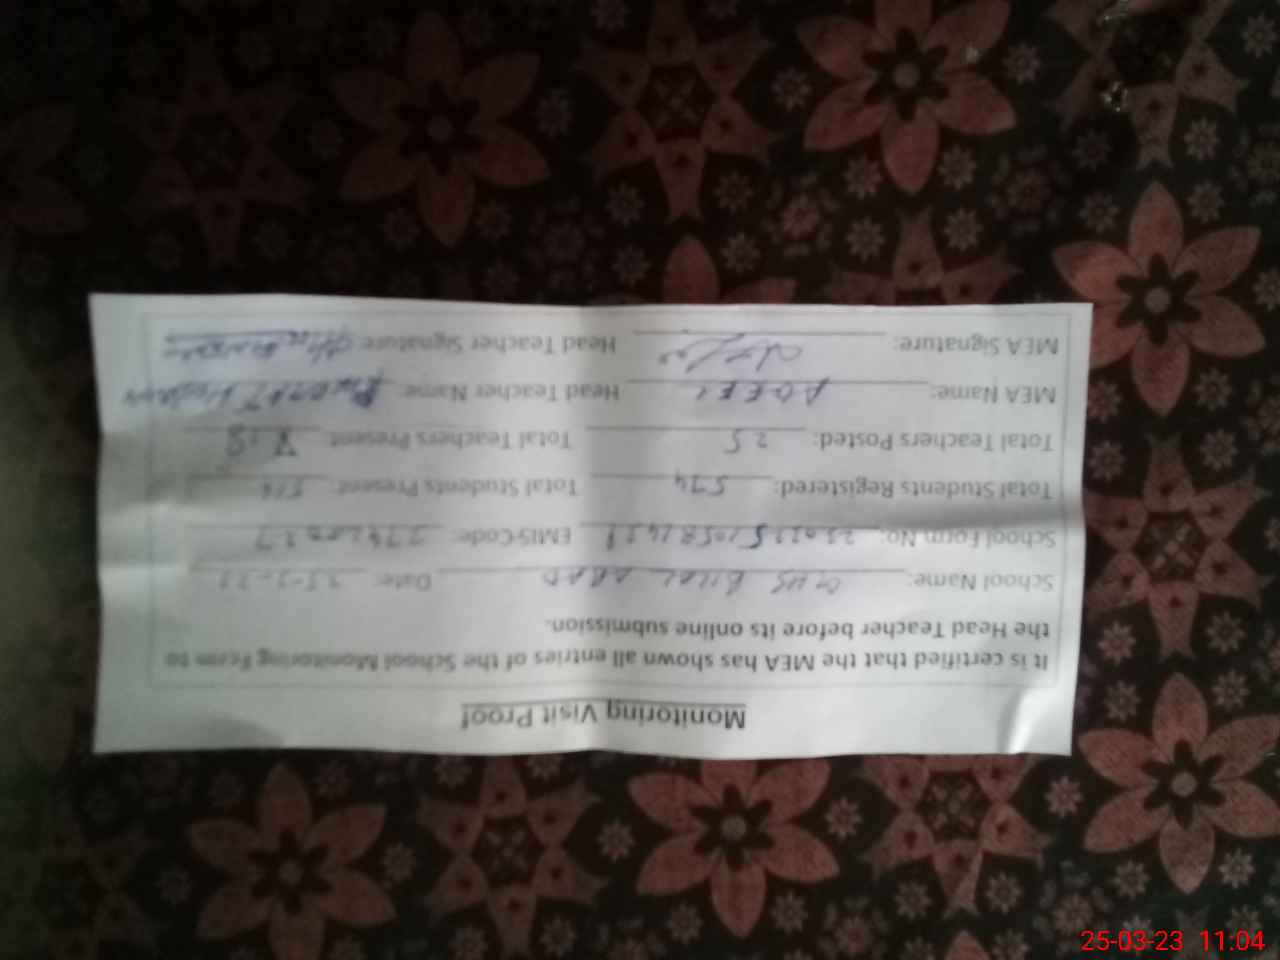 Monitoring Visit Proof
It is certified that the MEA has shown all entries of the School Monitoring Form to
the Head Teacher before its online submission.
School Name: GHS BILAL ABAD Date: 25-3-23
School Form No: EMIS Code:
Total Students Registered: 574 Total Students Present: 514
Total Teachers Posted: 25 Total Teachers Present:
MEA Name: ADEEL Head Teacher Name:
MEA Signature: Head Teacher Signature:
25-03-23 11:04